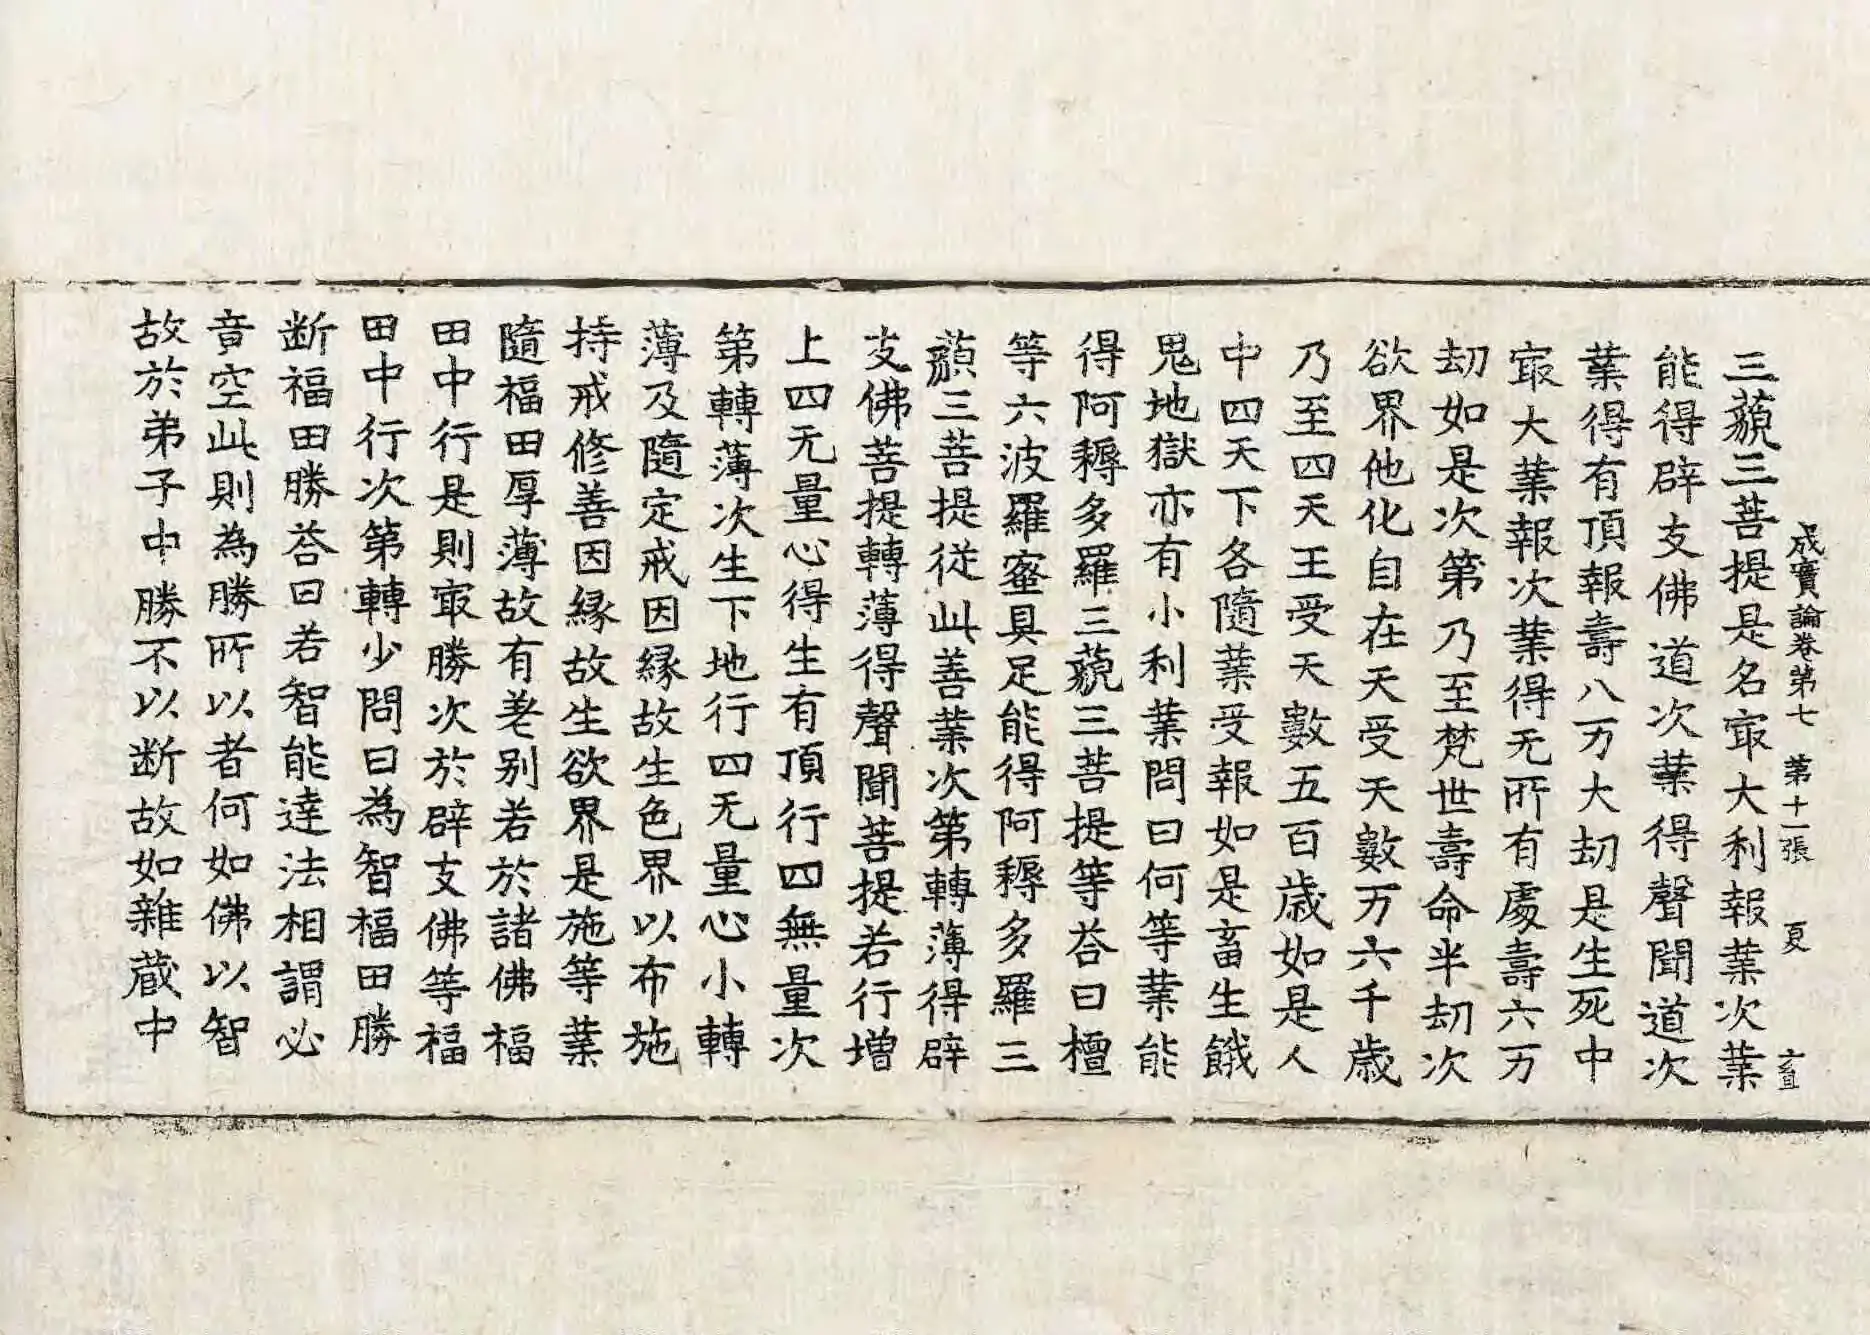 成實論卷第七 第十一張 夏
三藐三菩提是名㝡大利報業次業
能得辟支佛道次業得聲聞道次
業得有頂報壽八万大劫是生死中
㝡大業報次業得无所有處壽六万
劫如是次第乃至梵世壽命半劫次
欲界他化自在天受天數万六千歲
乃至四天王受天數五百歲如是人
中四天下各隨業受報如是畜生餓
鬼地獄亦有小利業問曰何等業能
得阿耨多羅三藐三菩提等荅曰檀
等六波羅蜜具足能得阿耨多羅三
藐三菩提從此善業次第轉薄得辟
支佛菩提轉薄得聲聞菩提若行增
上四无量心得生有頂行四無量次
第轉薄次生下地行四无量心小轉
薄及隨定戒因縁故生色界以布施
持戒修善因縁故生欲界是施等業
隨福田厚薄故有差别若於諸佛福
田中行是則㝡勝次於辟支佛等福
田中行次第轉少問曰為智福田勝
断福田勝荅曰若智能達法相謂必
竟空此則為勝所以者何如佛以智
故於弟子中勝不以断故如雜蔵中